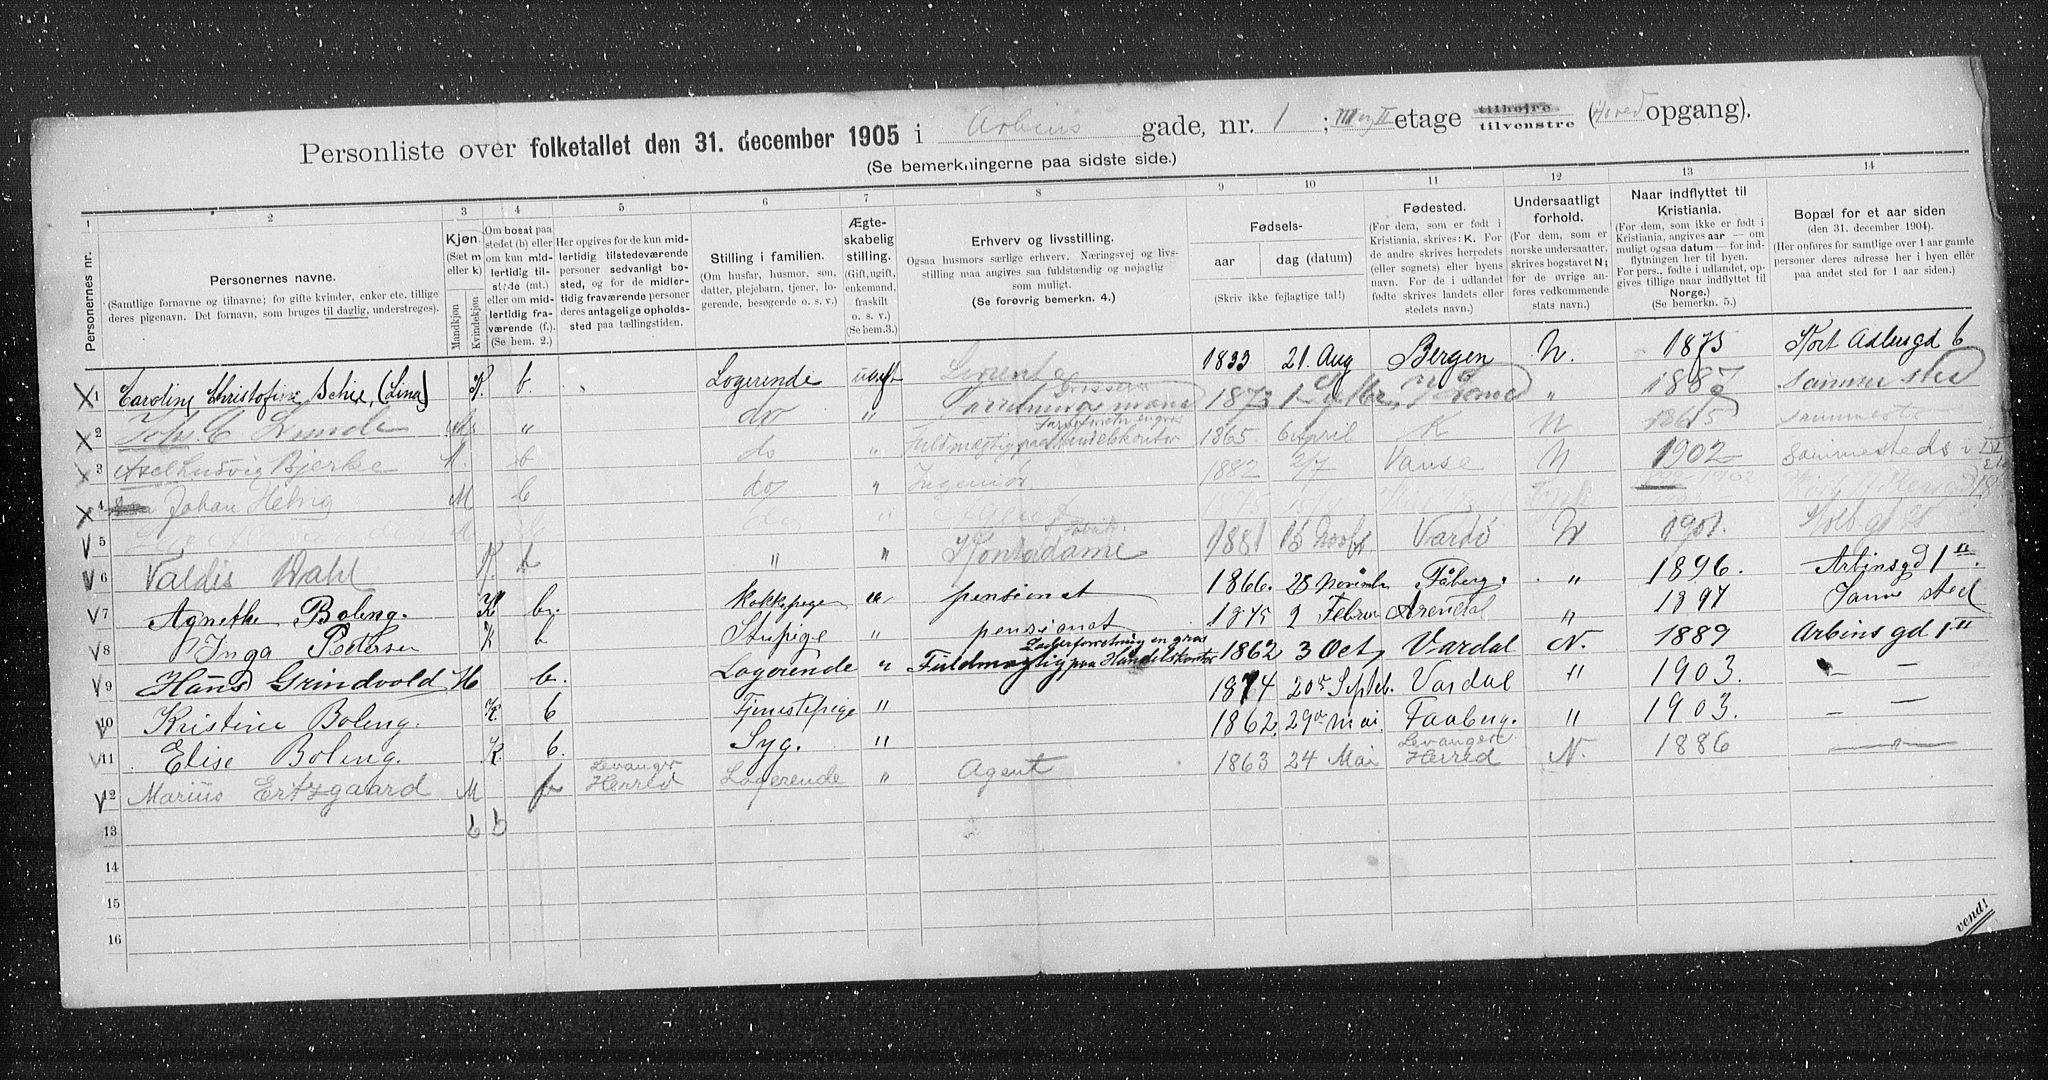 Personliste over folketallet den 31. december 1905 i Arbins gade, nr. 1 ; III og II etage tilhøjre tilvenstre (Hoved opgang).
(Se bemerkningerne paa sidste side.)
1 2 3 4 5 6 7 8 9 10 11 12 13 14
Personernes nr.
Personernes navne.
(Samtlige fornavne og tilnavne; for gifte kvinder, enker etc. tillige deres pigenavn. Det fornavn, som bruges til daglig, understreges).
Kjøn.
(Sæt m eller k)
Mandkjøn Kvindekjøn
Om bosat paa stedet (b) eller om kun midlertidig tilstede (mt.) eller om midlertidig fraværende (f.) (Se bem. 2.)
Her opgives for de kun midlertidig tilstedeværende personer sedvanligt bosted, og for de midlertidig fraværende personer deres antagelige opholdssted paa tællingstiden.
Stilling i familien.
(Om husfar, husmor, søn, datter, plejebarn, tjener, logerende, besøgerde o. s. v.)
Ægteskabelig stilling.
(Gift, ugift, enkemand, fraskilt o. s. v.) (Se bem.3.)
Erhverv og livsstilling.
Ogsaa husmors særlige erhverv. Næringsvej og livsstilling maa angives saa fuldstændig og nøjagtig som muligt.
(Se forøvrig bemerkn. 4.)
Fødsels-
aar dag (datum)
(Skriv ikke fejlagtige tal!)
Fødested.
(For dem, som er født i Kristiania, skrives: K. For de andre skrives herredets (eller sognets) eller byens navn. For de i udlandet fødte skrives landets eller stedets navn.)
Undersaatligt forhold.
(For dem, som er norske undersaatter, skrives bogstavet N; for de øvrige anføres vedkommende stats navn.)
Naar indflyttet til Kristiania.
(For dem, som ikke er født i Kristiania, angives aar — om muligt ogsaa datum — for indflytningen her til byen. For pers., fødte i udlandet, opgives tillige naar indflyttet til Norge.)
(Se bemerkn. 5.)
Bopæl for et aar siden
(den 31. december 1904).
(Her onføres for samtlige over 1 aar gamle personer deres adresse her i byen eller paa andet sted for 1 aar siden).
1 Caroline Christofine Schie, (Lina) K. b Logerende ugift 1833 21. Aug Bergen N. 1875 Kort Adlersgd 6
2 Joh. C. Lunde " do " 1873 " 1887 samme sted
3 Axel Ludvig Bjerke M. b do " Fuldmægtig paa Handelskontor 1865. 6 April K N 1865 sammested
4 Johan Helvig M b do " Ingeniør 1882 2/7 Vanse N 1902 sammesteds i IV
5 M do "
6 Valdis Dahl K. b " " Kontordame 1881 15 Vardö N 1901.
7 Agnethe Boleng. K b. kokkepige " pensionat 1866. 28 november Fåberg. " 1896. Arbinsgd 1
8 Inga Petersen K b Stuepige " pensionat 1875 2 Februar Arendal " 1897 Same sted
9 Hans Grindvold M b. Logerende " Læderforretning en gros Fuldmægtig paa Handelskontor 1862 3 Oct. Vardal N. 1889 Arbins gd 1
10 Kristine Boleng. K. b Tjenestepige " 1874 20de Septeb. Vardal " 1903. — —
11 Elise Boleng. K. b. Syg. " 1862. 29de mai. Faaberg. " 1903. — —
12 Marius Ertzgaard M f Levanger Herred Logerende " Agent 1863 24 Mai Levanger Herred N. 1886
13 6 6
14
15
16
vend!